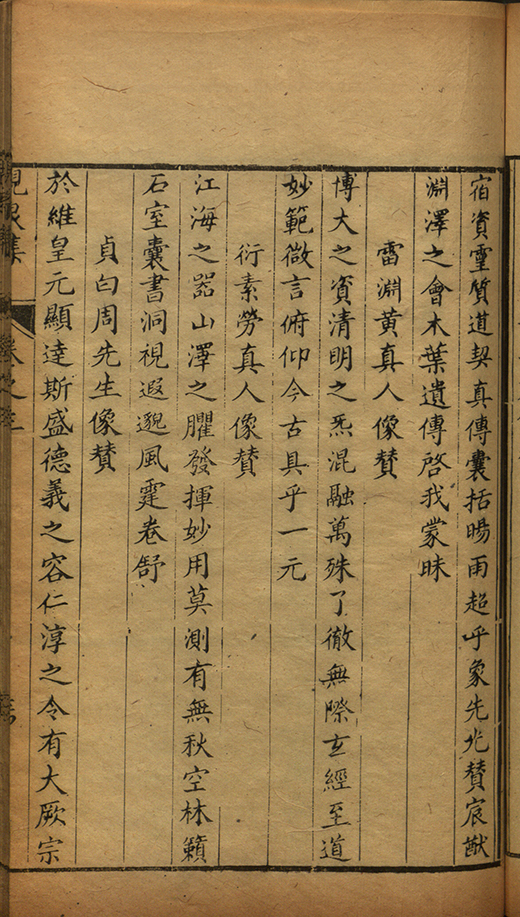 宿資靈質道契真傳囊括暘雨超乎象先光贊宸猷
淵澤之會木葉遺傳啓我蒙昧
雷淵黃真人像贊
博大之資清明之炁混融萬殊了徹無際玄經至道
妙範微言俯仰今古具乎一元
衍素勞真人像贊
江海之器山澤之臞發揮妙用莫測有無秋空林籟
石室囊書洞視遐邈風霆卷舒
貞白周先生像贊
於維皇元顯達斯盛德義之容仁淳之令有大厥宗
峴泉集
卷之